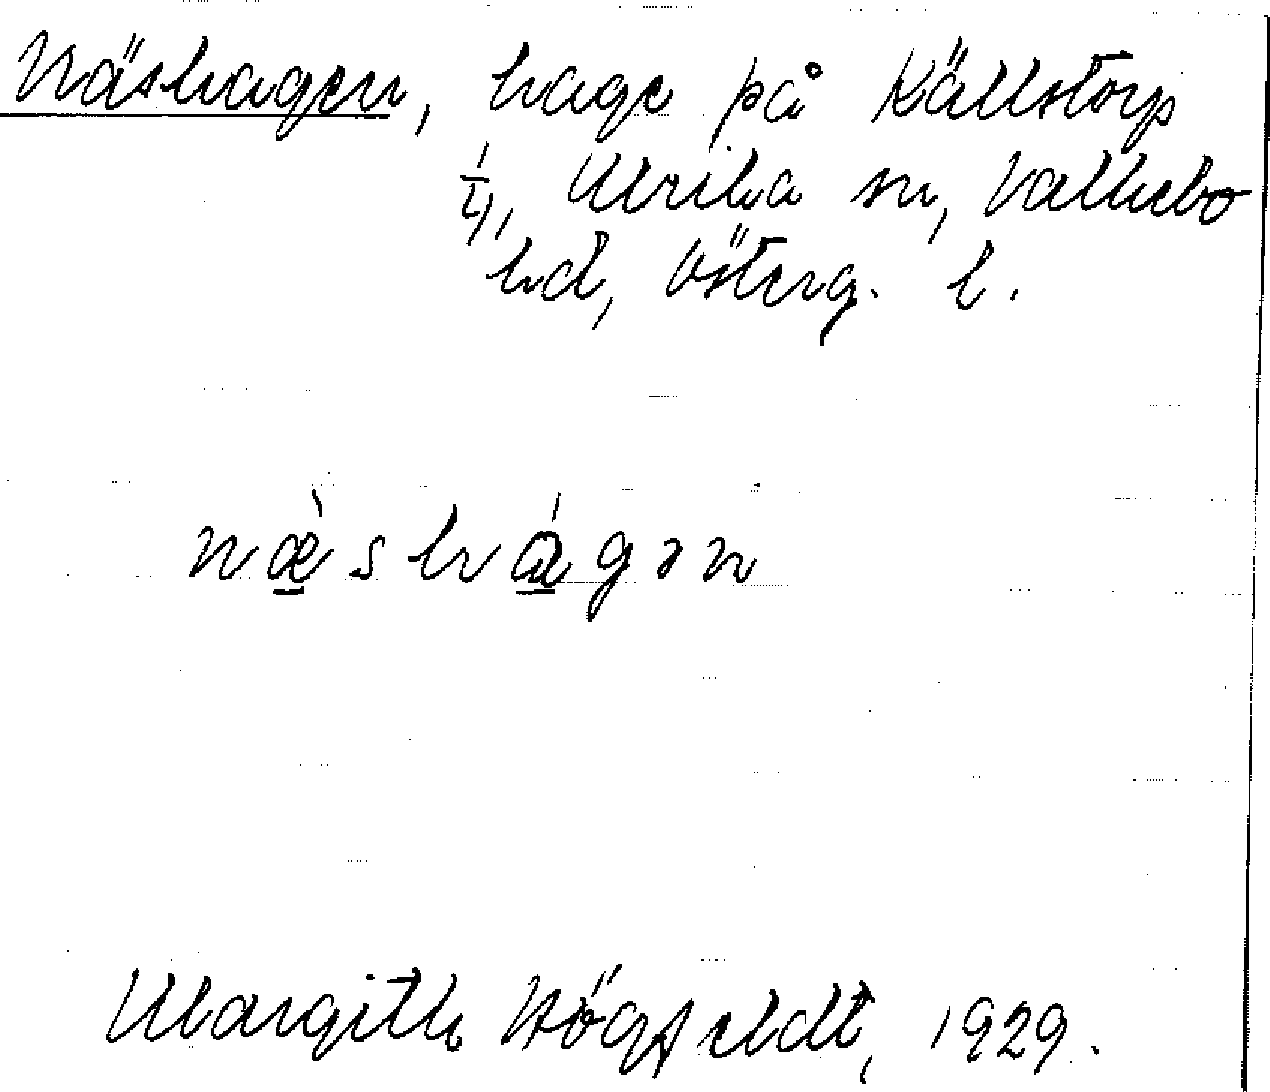 Näshagen, hage på Källstorp
1/4, Ulrika sn, Valkebo
hd, Österg. l.
næ̀shágən
Margith Högfeldt, 1929.